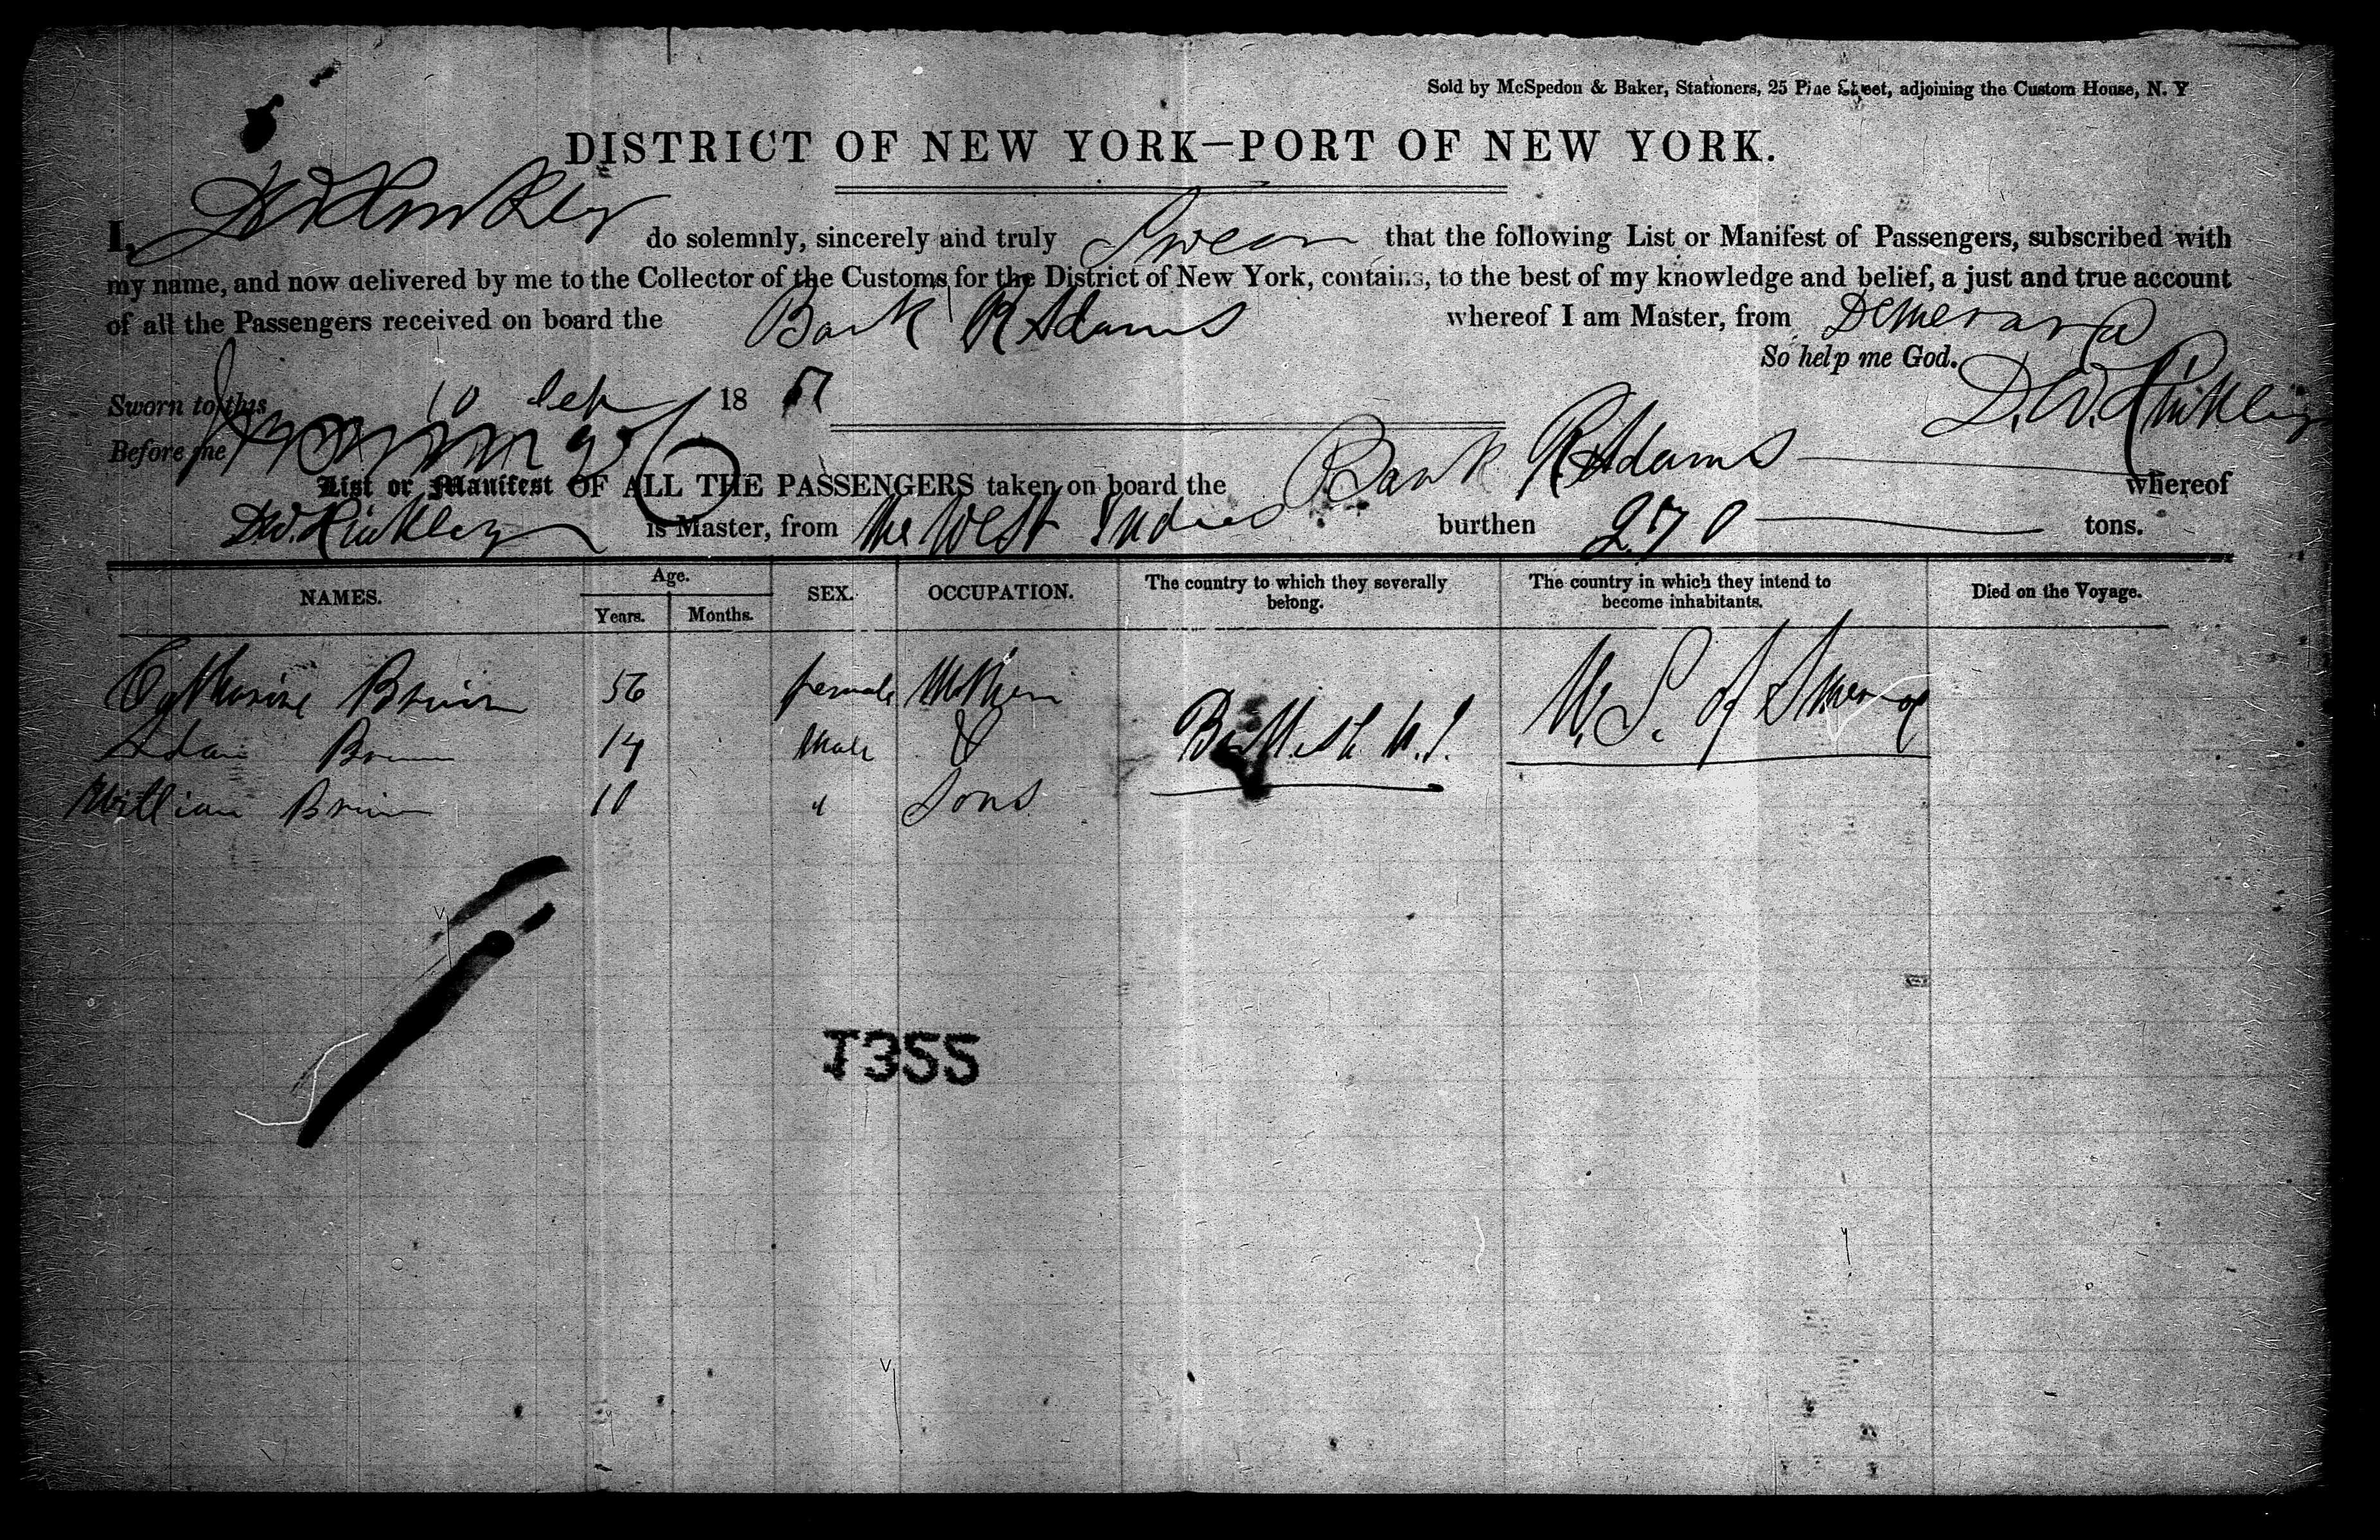 Sold by McSpedon & Baker, Stationers, 25 Pine Street, adjoining the Custom House, N. Y
DISTRICT OF NEW YORK—PORT OF NEW YORK.
I, D W Hinkley do solemnly, sincerely and truly Swear that the following List or Manifest of Passengers, subscribed with
my name, and now delivered by me to the Collector of the Customs for the District of New York, contains, to the best of my knowledge and belief, a just and true account
of all the Passengers received on board the Bark R Adams whereof I am Master, from Demerara
So help me God.
Sworn to this 10 Sep 18 D. W. Hinkley
Before me
List or Manifest OF ALL THE PASSENGERS taken on board the Bark R Adams whereof
D.W. Hinkley is Master, from the West Indies burthen 270 tons.
NAMES. Age. Years. Months. SEX. OCCUPATION. The country to which they severally belong. The country in which they intend to become inhabitants. Died on the Voyage.
Catharine 56 female Mother British W.I. U.S. of America
Adam 14 Male &
William 10 " Sons
T355